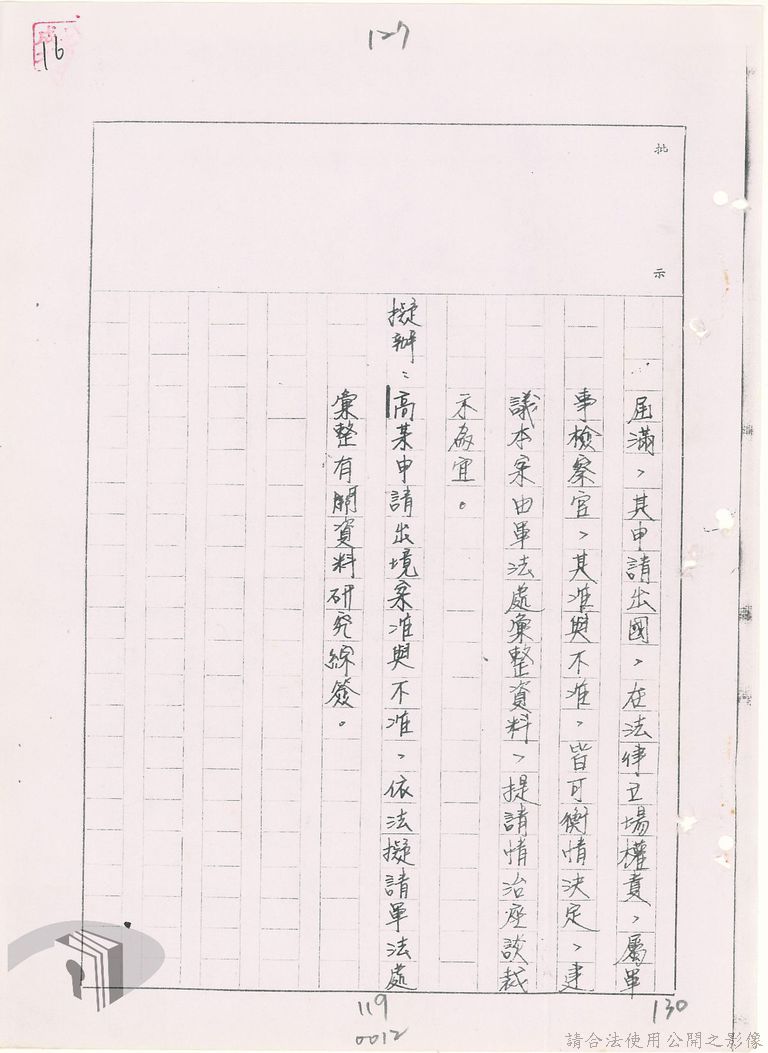 16
127
批示
屆滿，其申請出國，在法律立場權責，屬軍
事檢察官，其准與不准，皆可衡情決定，建
議本案由軍法處彙整資料，提請情治座談裁
示為宜。
擬辦：高某申請出境案准與不准，依法擬請軍法處
彙整有關資料研究綜簽。
119
130
0012
請合法使用公開之影像